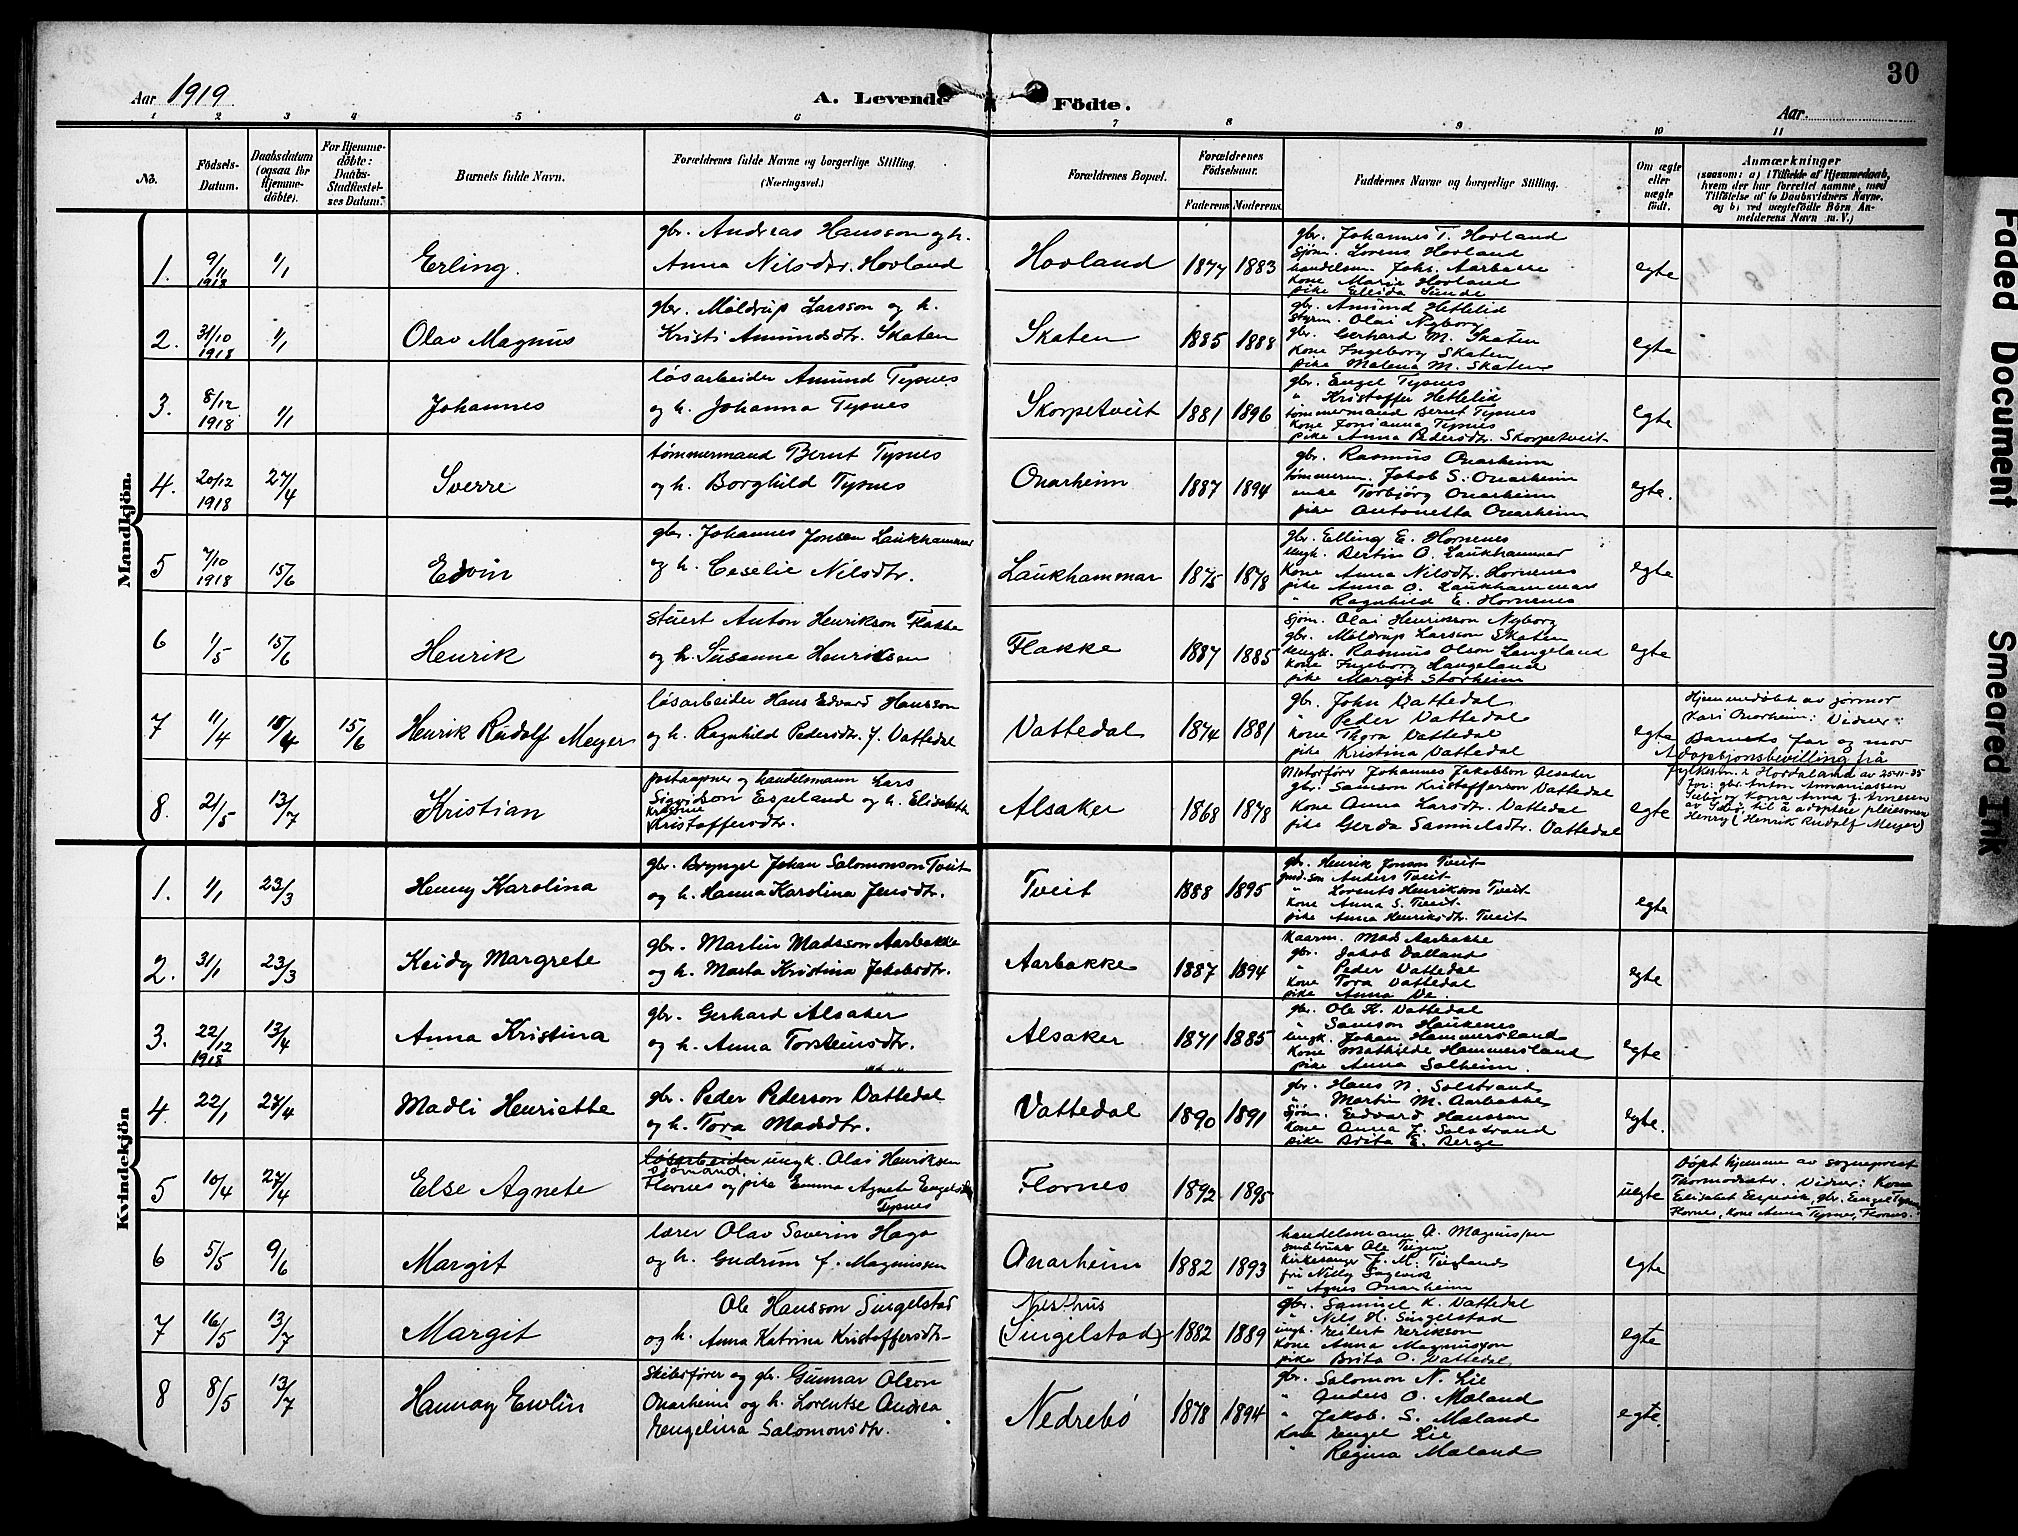 30
Aar 1919
A. Levende Födte.
Aar
1 2 3 4 5 6 7 8 9 10 11
No.
Födsels-Datum.
Daabsdatum (ogsaa for Hjemmedöbte).
For Hjemmedöbte: Daabs-Stadfæstelses Datum.
Barnets fulde Navn.
Forældrenes fulde Navne og borgerlige Stilling.
(Næringsvei.)
Forældrenes Bopæl.
Forældrenes Födselsaar.
Faderens Moderens.
Faddernes Navne og borgerlige Stilling.
Om ægte eller uægte födt.
Anmærkninger
(saasom: a) i Tilfælde af Hjemmedaab, hvem der har forrettet samme, med Tilföielse af to Daabsvidners Navne. og b) ved uægtefödte Börn Anmelderens Navn m. V.)
Mandkjön.
1. 9/11 1918 1/1 Erling.
gbr. Andreas Hansson og h.
Anna Nilsdtr. Hovland
Hovland 1877 1883
gbr. Johannes T. Hovland
Sjöm. Lorens Hovland
handelsm. Johs. Aarbakke
kone Marie Hovland
pike Elida Sunde
egte
2. 31/10 1918 1/1 Olav Magnus
gbr. Måldrup Larsson og h.
Kristi Amundsdtr. Skaten
Skaten 1885 1888
gbr. Amund Hettelid
styrm. Olai Nyborg
gbr. Gerhard M. Skaten
kone Ingeborg Skaten
pike Malena M. Skaten
egte
3. 8/12 1918 1/1 Johannes
løsarbeider Amund Tysnes
og h. Johanna Tysnes
Skorpetveit 1881 1896
gbr. Engel Tysnes
" Kristoffer Hettelid
tømmermand Bernt Tysnes
kone Jonsanna Tysnes
pike Anna Pedersdtr. Skorpetveit
egte
4. 20/12 1918 27/4 Sverre
tømmermand Bernt Tysnes
og h. Borghild Tysnes
Onarheim 1887 1894
gbr. Rasmus Onarheim
tømmerm. Jakob S. Onarheim
enke Torbjørg Onarheim
pike Antonetta Onarheim
egte.
5 7/10 1918 15/6 Edvin
gbr. Johannes Jonsen Laukhammer
og h. Ceselie Nilsdtr.
Laukhammar 1875 1878
gbr. Elling E. Hornenes
ungk. Bertin O. Laukhammar
kone Anna Nilsdtr. Hornenes
pike Anna O. Laukhammar
" Ragnhild E. Hornenes
egte
6 1/5 15/6 Henrik
stuert Anton Henrikson Flakke
og h. Susanne Henriksen
Flakke 1887 1885
sjöm. Olai Henrikson Nyborg
gbr. Måldrup Larsson Skaten
ungk. Rasmus Olson Langeland
kone Ingeborg Langeland
pike Margit Storheim
egte
7 11/4 18/4 15/6 Henrik Rudolf Meyer
løsarbeider Hans Edvard Hansson
og h. Ragnhild Pedersdtr. f. Vattedal
Vattedal 1874 1881
gb. John Vattedal
" Peder Vattedal
kone Thora Vattedal
pike Kristina Vattedal
egte
Hjemmedøbt av jormor
Kari Onarheim: Vidner:
Barnets far og mor
Adopsjonsbevilling frå
fylkesm. i Hordaland av 25-11-35
for: gbr. Anton Ammaniassen
og kona Anna f. Arnesen
til å adoptere pleiesonen
Henry (Henrik Rudolf Meyer)
8. 21/5 13/7 Kristian
postaapner og handelsmann Lars
Sigvidson Espeland og h. Elisabeth
Kristine
Kristoffersdtr.
Alsaker 1868 1878
Motorfører Johannes Jakobson Alsaker
gbr. Samson Kristofferson Vattedal
kone Anna Larsdtr. Vattedal
pike Gerda Samuelsdtr. Vattedal
egte
Kvindekjön
1. 1/1 23/3 Henny Karolina
gbr. Brynjel Johan Salomonson Tveit
og h. Hanna Karolina Jensdtr.
Tveit 1888 1895
gbr. Henrik Jonson Tveit
gmd.søn Anders Tveit
" Lorents Henrikson Tveit
kone Anna S. Tveit
pike Anna Henriksdtr. Tveit
egte
2. 31/1 23/3 Keidy Margrete
gbr. Martin Madsson Aarbakke
og h. Marta Kristina Jakobsdtr.
Aarbakke 1887 1894
kaarm. Mads Aarbakke
gbr. Jakob Dalland
" Peder Vattedal
kone Tora Vattedal
pike Anna Ve.
egte
3. 22/12 1918 13/4 Anna Kristina
gbr. Gerhard Alsaker
og h. Anna Torsteinsdtr.
Alsaker 1871 1885
gbr. Ole K. Vattedal
" Samson Haukenes
ungk. Johan Hammersland
kone Mathilde Hammersland
pike Anna Solheim.
egte
4. 22/1 27/4 Madli Henriette
gbr. Peder Pederson Vattedal
og h. Tora Madsdtr.
Vattedal 1890 1891
gbr. Hans N. Solstrand
" Martin M. Aarbakke
sjöm. Edvard Hansson
kone Anna J. Solstrand
pike Brita E. Berge
egte.
5 10/4 27/4 Else Agnete
løsarbeider ungk. Olai Henriksen
sjömand.
Flornes og pike Emma Agnete Engelsdtr.
Tysnes
Flornes 1892 1895
uegte
Döpt hjemme av sogneprest
Thormodsæter. Vidner: Kone
Elisabet Espevik, gbr. Engel Tysnes
Flornes, kone Anna Tysnes, Flornes.
6 5/5 9/6 Margit
lærer Olav Severin Haga
og h. Gudrun f. Magnussen
Onarheim 1882 1893
handelsmann A. Magnussen
småbruker Ole Teigen
kirkesanger J. M. Teigland
frk Nelly
" Agnes Onarheim
egte
7 16/5 13/7 Margit
Ole Hansson Singelstad
og h. Anna Katrina Kristoffersdtr.
Nesthus
(Singelstad) 1882 1889
gbr. Samuel K. Vattedal
" Nils H. Singelstad
ungk. Eilert Erikson
kone Anna Magnusson
pike Brita O. Vattedal
egte
8 8/5 13/7 Hannay Evelin
Skibsfører og gbr. Gunnar Olson
Onarheim og h. Lorentse Andrea
Engelina Salomonsdtr.
Nedrebø 1878 1894
gbr. Salomon N. Lie
" Anders O. Mæland
" Jakob. S. Mæland
kone Engel Lie
" Regina Mæland
egte.
Faded Document
Smeared Ink